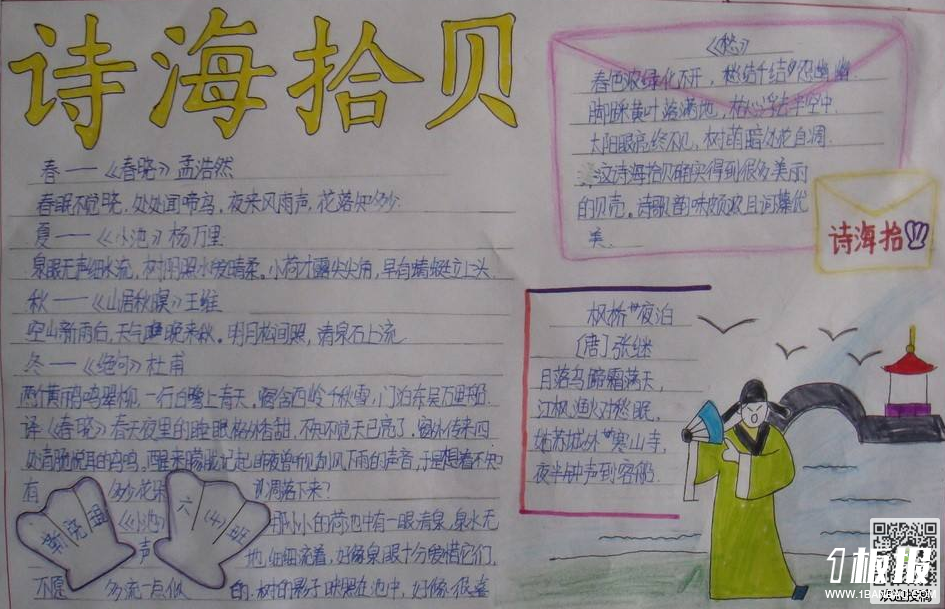 诗海拾贝
春——《春晓》孟浩然
春眠不觉晓，处处闻啼鸟，夜来风雨声，花落知多少
夏——《小池》杨万里
泉眼无声细水流，树阴照水爱晴柔。小荷才露尖尖角，早有蜻蜓立上头
秋——《山居秋暝》王维
空山新雨后，天气晚来秋。明月松间照，清泉石上流
冬——《绝句》杜甫
两个黄鸝鸣翠柳，一行白鹭上青天，窗含西岭千秋雪，门泊东吴万里船
译《春晓》春天夜里的睡眠格外香甜，不知不觉天已亮了，窗外传来四
处清脆悦耳的鸟鸣，醒来朦胧记起昨夜曾听到刮风下雨的声音，于是想着不知
有 多少花朵 凋落下来？
《小池》 那小小的荷池中有一眼清泉，泉水无
声 地，细细流着，好像泉眼十分爱惜它们，
不愿 多流一点似 的。树的影子映照在池中，好像很喜
六（三）班
《愁》
春色浓绿化不开，愁结千结 忍幽幽
脚踩黄叶落满地，
太阳眼高终不见，树荫暗处花自凋
这诗海拾贝确实得到很多美丽
的贝壳。诗歌 味 且词藻优
美。
诗海拾贝
枫桥夜泊
[唐]张继
月落乌啼霜满天，
江枫渔火对愁眠，
姑苏城外寒山寺，
夜半钟声到客船
1板报
WWW.1BANBAO.COM